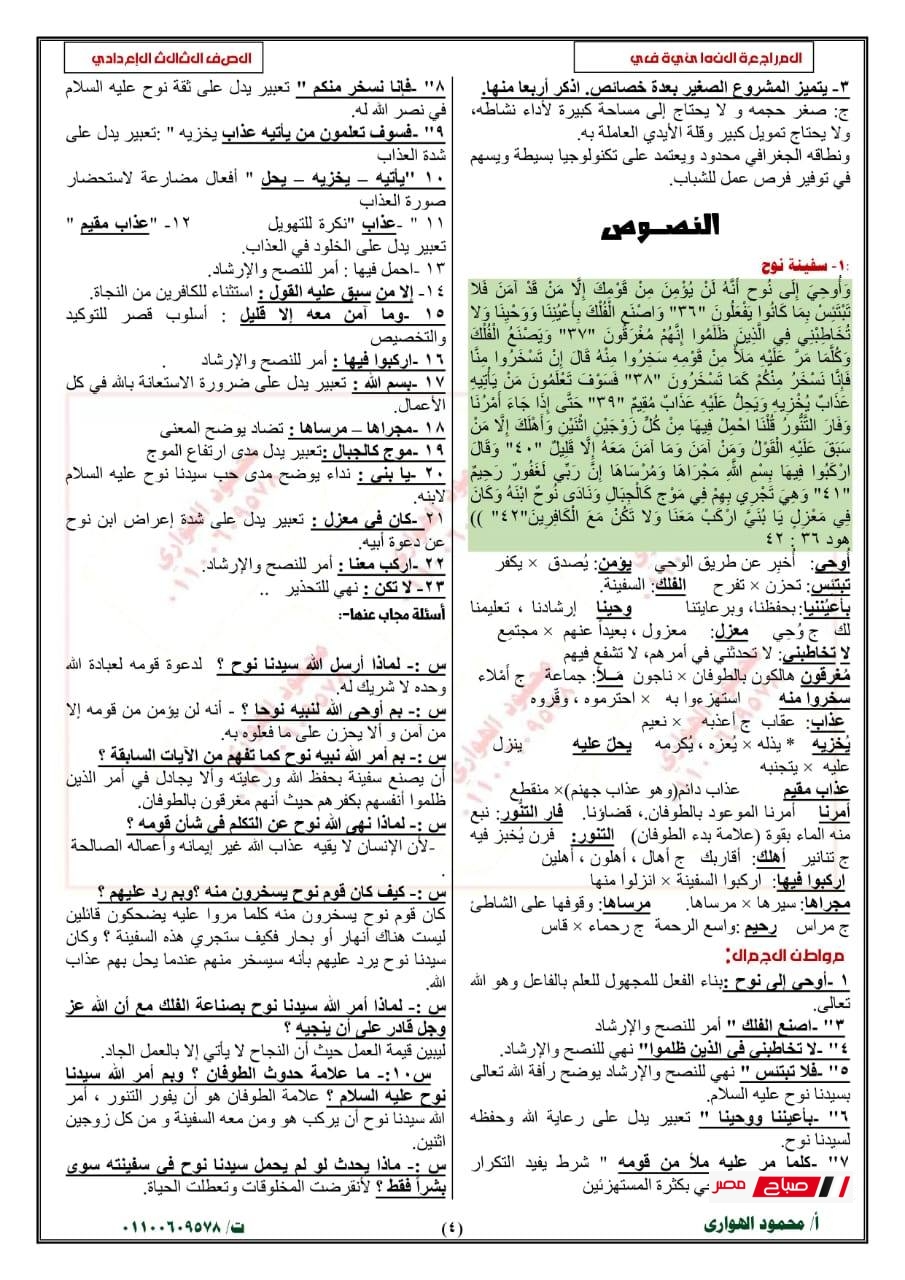 المراجعة النهائية في
الصف الثالث الإعدادي
٣- يتميز المشروع الصغير بعدة خصائص. اذكر أربعا منها.
ج: صغر حجمه و لا يحتاج إلى مساحة كبيرة لأداء نشاطه،
ولا يحتاج تمويل كبير وقلة الأيدي العاملة به.
ونطاقه الجغرافي محدود ويعتمد على تكنولوجيا بسيطة ويسهم
في توفير فرص عمل للشباب.
النصوص
١- سفينة نوح:
وَأُوحِيَ إِلَى نُوحٍ أَنَّهُ لَنْ يُؤْمِنَ مِنْ قَوْمِكَ إِلَّا مَنْ قَدْ آمَنَ فَلَا
تَبْتَئِسْ بِمَا كَانُوا يَفْعَلُونَ "٣٦" وَاصْنَعِ الْفُلْكَ بِأَعْيُنِنَا وَوَحْيِنَا وَلَا
تُخَاطِبْنِي فِي الَّذِينَ ظَلَمُوا إِنَّهُمْ مُغْرَقُونَ "٣٧" وَيَصْنَعُ الْفُلْكَ
وَكُلَّمَا مَرَّ عَلَيْهِ مَلَأٌ مِنْ قَوْمِهِ سَخِرُوا مِنْهُ قَالَ إِنْ تَسْخَرُوا مِنَّا
فَإِنَّا نَسْخَرُ مِنْكُمْ كَمَا تَسْخَرُونَ "٣٨" فَسَوْفَ تَعْلَمُونَ مَنْ يَأْتِيهِ
عَذَابٌ يُخْزِيهِ وَيَحِلُّ عَلَيْهِ عَذَابٌ مُقِيمٌ "٣٩" حَتَّى إِذَا جَاءَ أَمْرُنَا
وَفَارَ التَّنُّورُ قُلْنَا احْمِلْ فِيهَا مِنْ كُلٍّ زَوْجَيْنِ اثْنَيْنِ وَأَهْلَكَ إِلَّا مَنْ
سَبَقَ عَلَيْهِ الْقَوْلُ وَمَنْ آمَنَ وَمَا آمَنَ مَعَهُ إِلَّا قَلِيلٌ "٤٠" وَقَالَ
ارْكَبُوا فِيهَا بِسْمِ اللَّهِ مَجْرَاهَا وَمُرْسَاهَا إِنَّ رَبِّي لَغَفُورٌ رَحِيمٌ
"٤١" وَهِيَ تَجْرِي بِهِمْ فِي مَوْجٍ كَالْجِبَالِ وَنَادَى نُوحٌ ابْنَهُ وَكَانَ
فِي مَعْزِلٍ يَا بُنَيَّ ارْكَبْ مَعَنَا وَلَا تَكُنْ مَعَ الْكَافِرِينَ"٤٢" ))
هود ٣٦ : ٤٢
أُوحي: أُخبِر عن طريق الوحي يؤمن: يُصدق × يكفر
تبتئس: تحزن × تفرح الفلك: السفينة.
بأعيُننا: بحفظنا، وبرعايتنا وحينا إرشادنا ، تعليمنا
لك ج وُحِي معزل: معزول ، بعيداً عنهم × مجتمِع
لا تخاطبني: لا تحدثني في أمرهم، لا تشفع فيهم
مُغرقون هالكون بالطوفان × ناجون مَـلأ: جماعة ج أمْلاء
سخروا منه استهزءوا به × احترموه ، وقّروه
عذاب: عقاب ج أعذبه × نعيم
يُخزيه * يذله × يُعزه ، يُكرمه يحلّ عليه ينزل
عليه × يتجنبه
عذاب مقيم عذاب دائم(وهو عذاب جهنم)× منقطع
أمرنا أمرنا الموعود بالطوفان.، قضاؤنا. فار التنُّور: نبع
منه الماء بقوة (علامة بدء الطوفان) التنور: فرن يُخبز فيه
ج تنانير أهلك: أقاربك ج أهال ، أهلون ، أهلين
اركبوا فيها: اركبوا السفينة × انزلوا منها
مجراها: سيرها × مرساها. مرساها: وقوفها على الشاطئ
ج مراس رحيم :واسع الرحمة ج رحماء × قاس
مواطن الجمال:
١ -أوحي إلى نوح :بناء الفعل للمجهول للعلم بالفاعل وهو الله
تعالى.
٣" -اصنع الفلك " أمر للنصح والإرشاد
٤" -لا تخاطبني في الذين ظلموا" نهي للنصح والإرشاد.
٥" -فلا تبتئس " نهي للنصح والإرشاد يوضح رأفة الله تعالى
بسيدنا نوح عليه السلام.
٦" -بأعيننا ووحينا " تعبير يدل على رعاية الله وحفظه
لسيدنا نوح.
٧" -كلما مر عليه ملأ من قومه " شرط يفيد التكرار
ي بكثرة المستهزئين
صباح مصر
٨" -فإنا نسخر منكم " تعبير يدل على ثقة نوح عليه السلام
في نصر الله له.
٩" -فسوف تعلمون من يأتيه عذاب يخزيه " :تعبير يدل على
شدة العذاب
١٠ "يأتيه – يخزيه – يحل " أفعال مضارعة لاستحضار
صورة العذاب
١١ " -عذاب "نكرة للتهويل ١٢- "عذاب مقيم "
تعبير يدل على الخلود في العذاب.
١٣ -احمل فيها : أمر للنصح والإرشاد.
١٤- إلا من سبق عليه القول : استثناء للكافرين من النجاة.
١٥ -وما آمن معه إلا قليل : أسلوب قصر للتوكيد
والتخصيص
١٦ -اركبوا فيها : أمر للنصح والإرشاد .
١٧ -بسم الله : تعبير يدل على ضرورة الاستعانة بالله في كل
الأعمال.
١٨ -مجراها – مرساها : تضاد يوضح المعنى
١٩ -موج كالجبال:تعبير يدل مدى ارتفاع الموج
٢٠ -يا بني : نداء يوضح مدى حب سيدنا نوح عليه السلام
لابنه.
٢١ -كان في معزل : تعبير يدل على شدة إعراض ابن نوح
عن دعوة أبيه.
٢٢ -اركب معنا : أمر للنصح والإرشاد.
٢٣- لا تكن : نهي للتحذير ..
أسئلة مجاب عنها:-
س :- لماذا أرسل الله سيدنا نوح ؟ لدعوة قومه لعبادة الله
وحده لا شريك له.
س :- بم أوحى الله لنبيه نوحا ؟ - أنه لن يؤمن من قومه إلا
من آمن و ألا يحزن على ما فعلوه به.
س :- بم أمر الله نبيه نوح كما تفهم من الآيات السابقة ؟
أن يصنع سفينة بحفظ الله ورعايته وألا يجادل في أمر الذين
ظلموا أنفسهم بكفرهم حيث أنهم مغرقون بالطوفان.
س :- لماذا نهى الله نوح عن التكلم في شأن قومه ؟
-لأن الإنسان لا يقيه عذاب الله غير إيمانه وأعماله الصالحة
.
س :- كيف كان قوم نوح يسخرون منه ؟وبم رد عليهم ؟
كان قوم نوح يسخرون منه كلما مروا عليه يضحكون قائلين
ليست هناك أنهار أو بحار فكيف ستجري هذه السفينة ؟ وكان
سيدنا نوح يرد عليهم بأنه سيسخر منهم عندما يحل بهم عذاب
الله.
س :- لماذا أمر الله سيدنا نوح بصناعة الفلك مع أن الله عز
وجل قادر على أن ينجيه ؟
ليبين قيمة العمل حيث أن النجاح لا يأتي إلا بالعمل الجاد.
س١٠:- ما علامة حدوث الطوفان ؟ وبم أمر الله سيدنا
نوح عليه السلام ؟ علامة الطوفان هو أن يفور التنور ، أمر
الله سيدنا نوح أن يركب هو ومن معه السفينة و من كل زوجين
اثنين.
س :- ماذا يحدث لو لم يحمل سيدنا نوح في سفينته سوى
بشراً فقط ؟ لأنقرضت المخلوقات وتعطلت الحياة.
أ/ محمود الهوارى
(٤)
ت/ ٠١١٠٠٦٠٩٥٧٨
محمود الهواري
٠١١٠٠٦٠٩٥٧٨